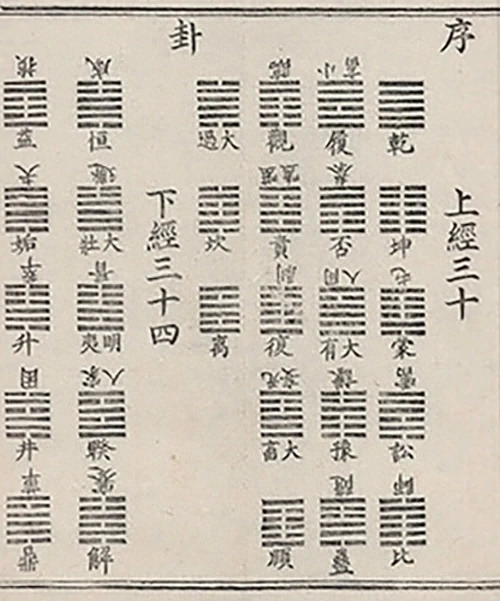 序卦
上經三十
乾
坤
屯
蒙
需
訟
師
比
小畜
履
泰
否
同人
大有
謙
豫
隨
蠱
臨
觀
噬嗑
賁
剝
復
无妄
大畜
頤
大過
坎
离
下經三十四
咸
恒
遯
大壯
晉
明夷
家人
睽
蹇
解
損
益
夬
姤
萃
升
困
井
革